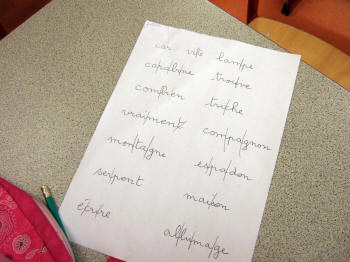 car vite lampe
carabine trouve
combien triche
vraiment compagnon
montagne espadon
serpent maison
allumage